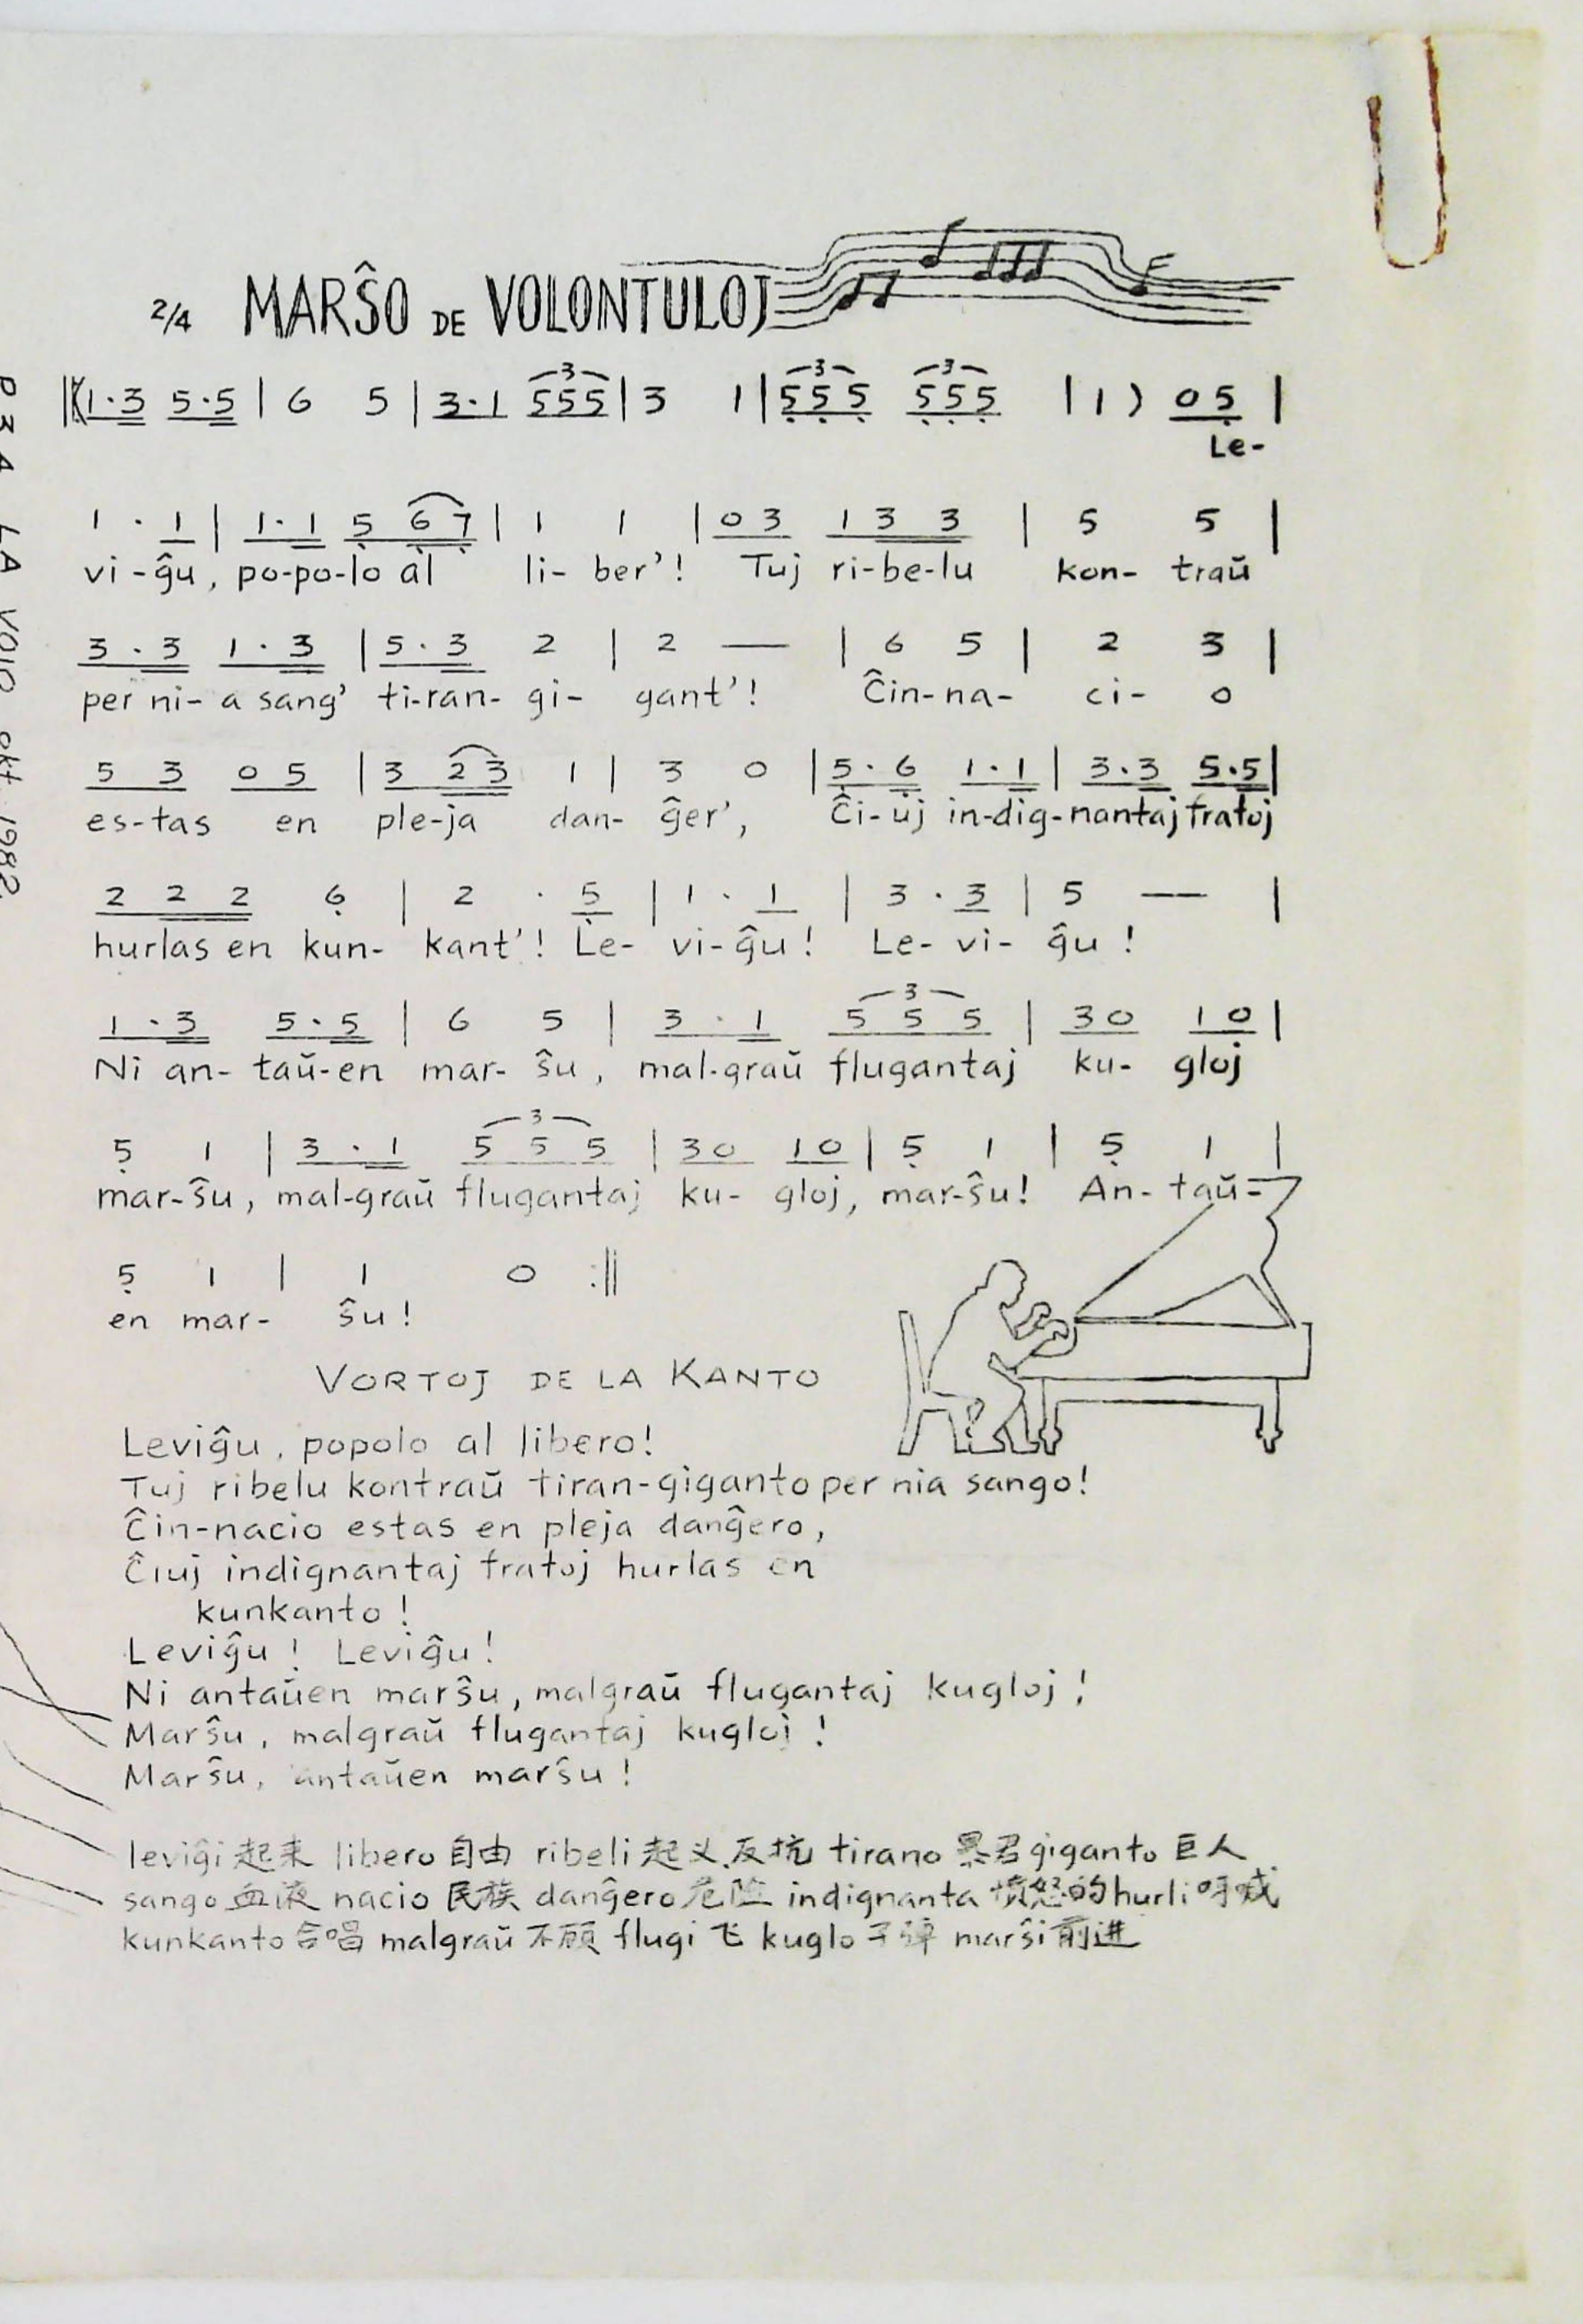 2/4 MARŜO DE VOLONTULOJ
1·3 5·5 | 6 5 | 3·1 555 | 3 1 | 555 555 | 1 ) 05 |
Le-
1 · 1 | 1·1 5 67 | 1 1 | 03 133 | 5 5 |
vi-ĝu, po-po-lo al li-ber'! Tuj ri-be-lu kon-traŭ
3·3 1·3 | 5·3 2 | 2 — | 6 5 | 2 3 |
per ni-a sang' ti-ran-gi-gant'! Ĉin-na-ci-o
5 3 0 5 | 3 23 1 | 3 0 | 5·6 1·1 | 3·3 5·5 |
es-tas en ple-ja dan-ĝer', Ĉi-uj in-dig-nantaj fratoj
2 2 2 6 | 2 · 5 | 1 · 1 | 3 · 3 | 5 — |
hurlas en kun-kant'! Le-vi-ĝu! Le-vi-ĝu!
1·3 5·5 | 6 5 | 3·1 555 | 30 10 |
Ni an-taŭ-en mar-ŝu, mal-graŭ flugantaj ku-gloj
5 1 | 3·1 555 | 30 10 | 5 1 | 5 1 |
mar-ŝu, mal-graŭ flugantaj ku-gloj, mar-ŝu! An-taŭ=
5 1 | 1 0 :||
en mar-ŝu!
VORTOJ DE LA KANTO
Leviĝu, popolo al libero!
Tuj ribelu kontraŭ tiran-giganto per nia sango!
Ĉin-nacio estas en pleja danĝero,
Ĉiuj indignantaj fratoj hurlas en
kunkanto!
Leviĝu! Leviĝu!
Ni antaŭen marŝu, malgraŭ flugantaj kugloj!
Marŝu, malgraŭ flugantaj kugloj!
Marŝu, antaŭen marŝu!
leviĝi 起来 libero 自由 ribeli 起义、反抗 tirano 暴君 giganto 巨人
sango 血液 nacio 民族 danĝero 危险 indignanta 愤怒的 hurli 呼喊
kunkanto 合唱 malgraŭ 不顾 flugi 飞 kuglo 子弹 marŝi 前进
LA VOJO okt. 1982